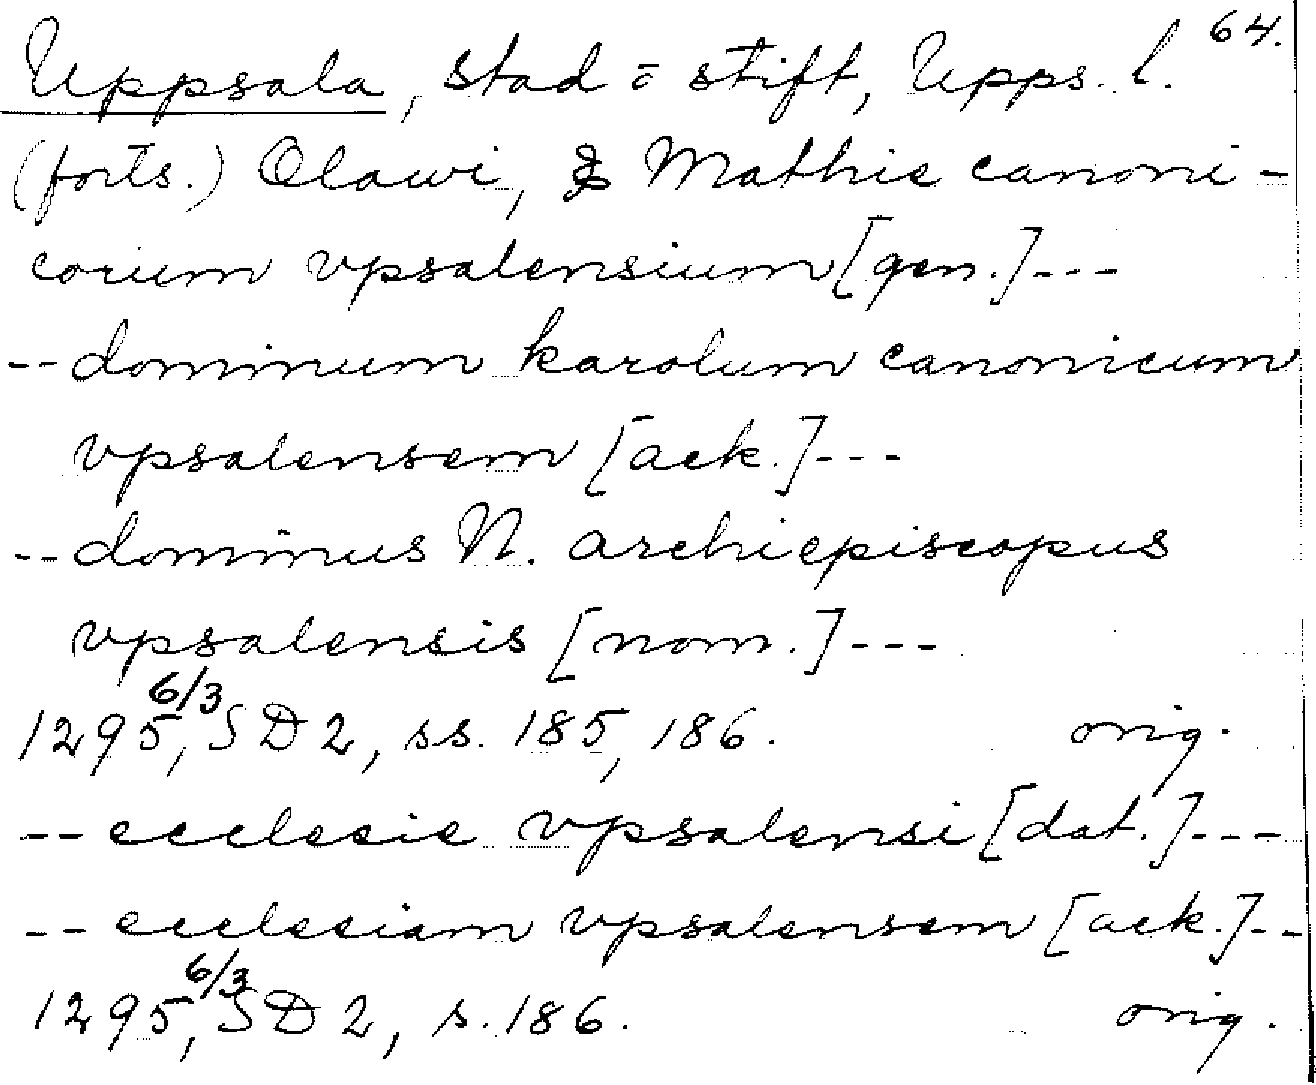 64.
Uppsala, stad o stift, Upps. l.
(forts.) Olawi, & Mathie canoni-
corum vpsalensium [gen.]---
--dominum karolum canonicum
vpsalensem [ack.]---
--dominus N. archiepiscopus
vpsalensis [nom.]---
1295 6/3, SD 2, ss. 185, 186. orig.
--ecclesie vpsalensi [dat.]---
--ecclesiam vpsalensem [ack.]--
1295 6/3, SD 2, s. 186. orig.